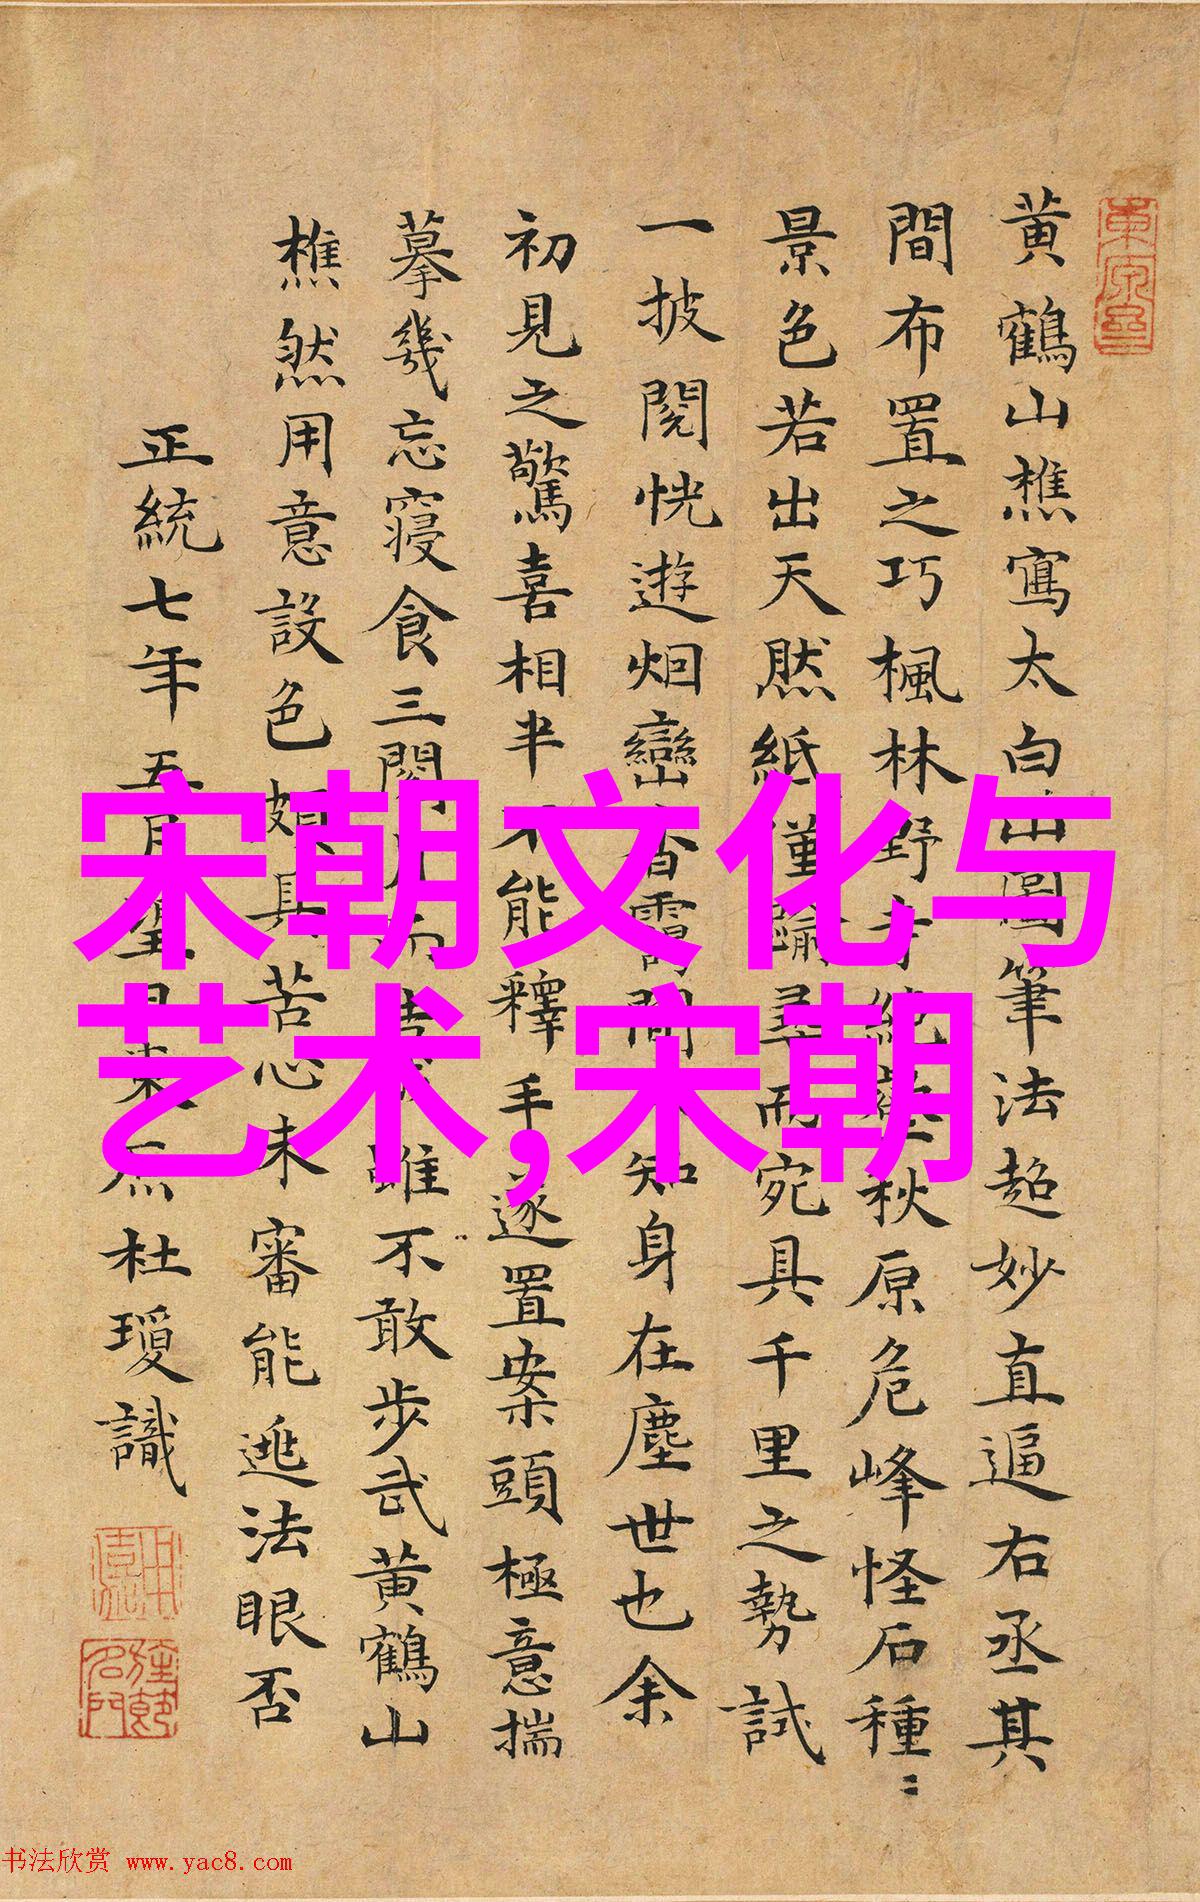 黄鶴山樵寫太白山圖筆法超妙直逼右丞其
間布置之巧楓林野寺絶壑秋原危峰怪石種〻
景色若出天然紙僅踰尋而宛具千里之勢試
一披閱恍遊烟巒香靄間知身在塵世也余
初見之驚喜相半不能釋手遂置案頭極意揣
摹幾忘寢食三閱月而雖不敢步武黄鶴山
樵然用意設色頗具苦心未審能逃法眼否
正統七年五月望日東原杜瓊識
宋朝文化与
艺术,宋朝
书法欣赏 www.yac8.com